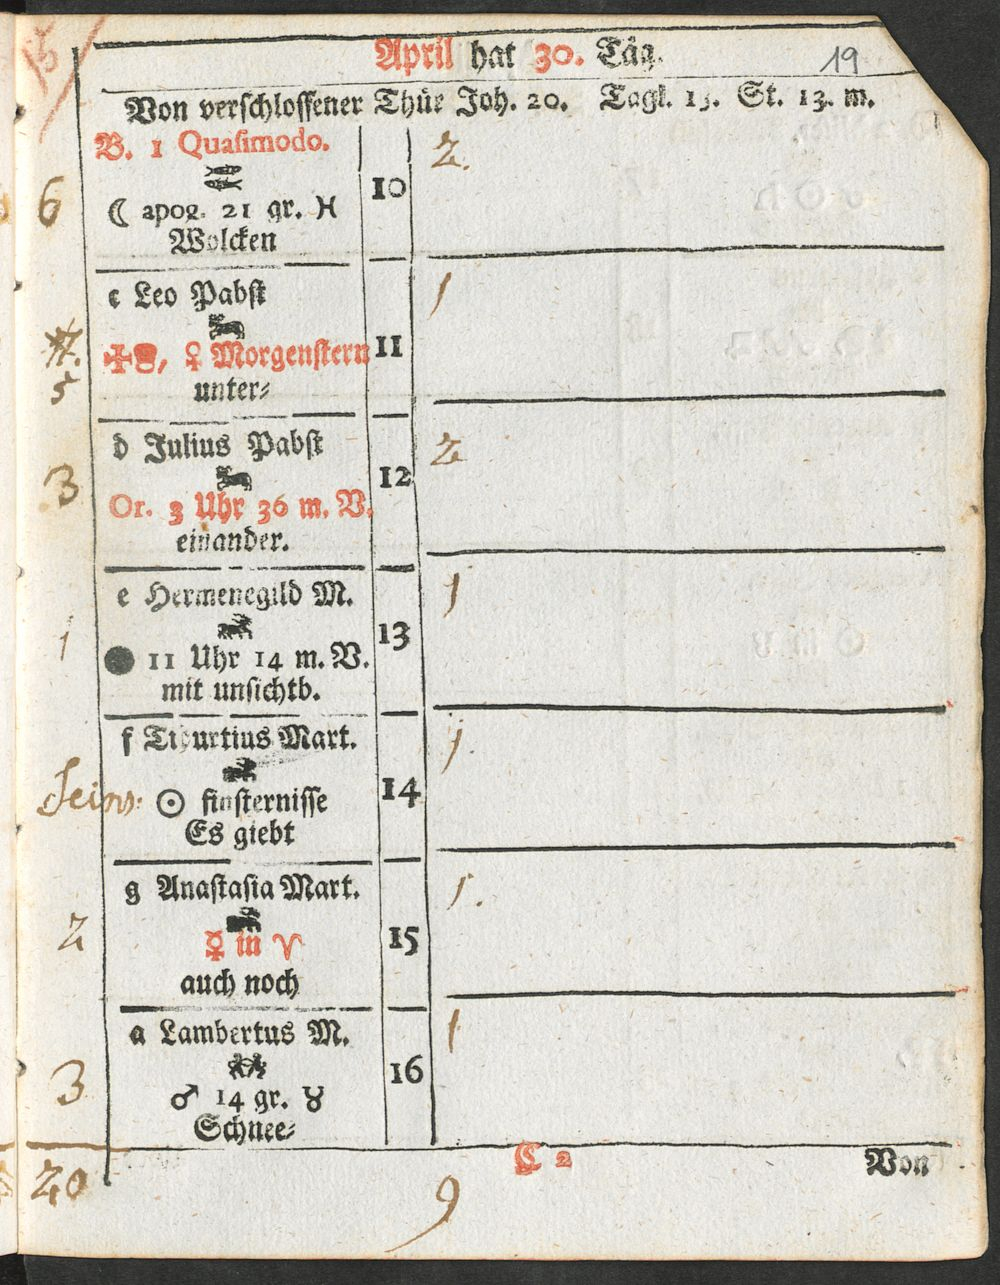 5
April hat 30. Täg.
19
Von verschlossener Thür Joh. 20. Tagl. 13. St. 13. m.
B. 1 Quasimodo.
6
☾ apog. 21 gr. ♓
Wolcken
10
2.
c Leo Pabst
✠, ♀ Morgenstern
5
unter⸗
11
1
d Julius Pabst
3
Or. 3 Uhr 36 m. V.
einander.
12
2
e Hermenegild M.
1
● 11 Uhr 14 m. V.
mit unsichtb.
13
1
f Tiburtius Mart.
☉ finsternisse
Es giebt
14
1.
g Anastasia Mart.
2
☿ in ♈
auch noch
15
1.
a Lambertus M.
3
♂ 14 gr. ♉
Schnee⸗
16
1
C 2
Von
20
9